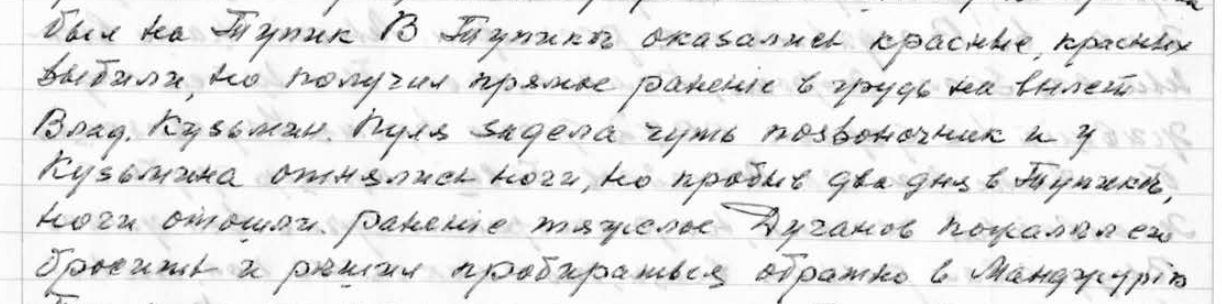 был на Тупик В Тупикѣ оказались красные, красных
выбили, но получил прямое раненіе в грудь на вылет
Влад. Кузьмин. Пуля задела чуть позвоночник и у
Кузьмина отнялись ноги, но пробыв два дня в Тупикѣ,
ноги отошли. раненіе тяжелое Дуганов пожалѣл его
бросить и рѣшил пробираться обратно в Манджурію